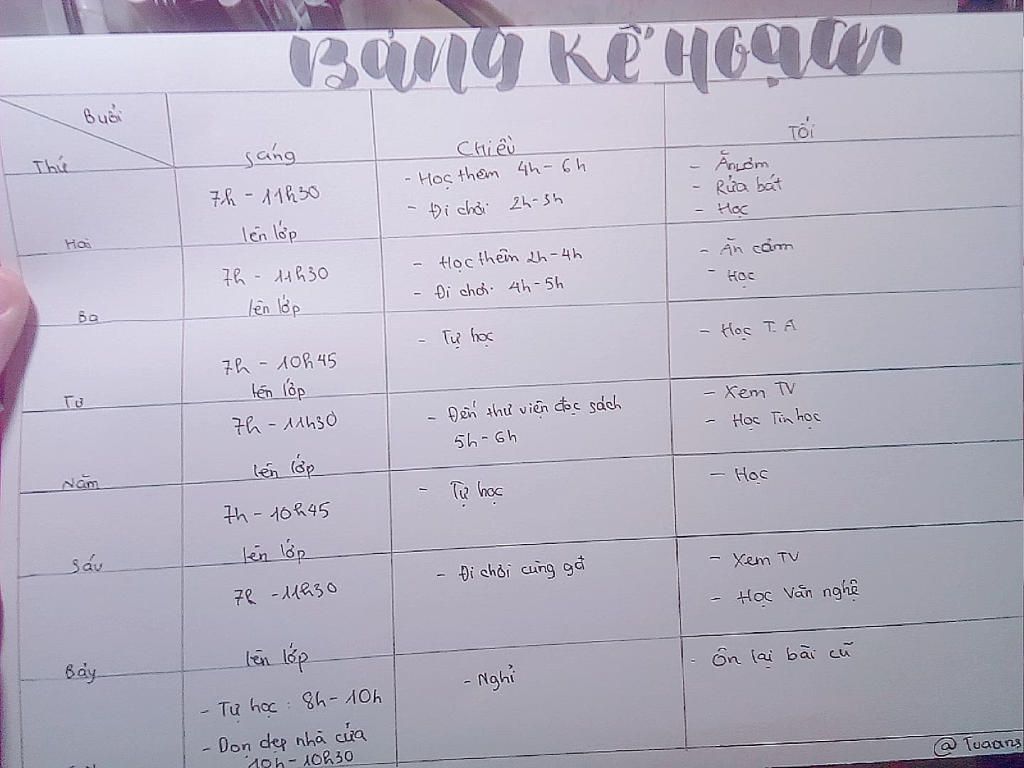 BẢNG KẾ HOẠCH
Buổi
Thứ
Sáng
Chiều
Tối
Hai
7h - 11h30
lên lớp
- Học thêm 4h - 6h
- Đi chơi 2h - 3h
- Ăn cơm
- Rửa bát
- Học
Ba
7h - 11h30
lên lớp
- Học thêm 2h - 4h
- Đi chơi 4h - 5h
- Ăn cơm
- Học
Tư
7h - 10h45
lên lớp
- Tự học
- Học T.A
Năm
7h - 11h30
lên lớp
- Đến thư viện đọc sách
5h - 6h
- Xem TV
- Học Tin học
Sáu
7h - 10h45
lên lớp
- Tự học
- Học
Bảy
7h - 11h30
lên lớp
- Đi chơi cùng gđ
- Xem TV
- Học Văn nghệ
- Tự học : 8h - 10h
- Dọn dẹp nhà cửa
10h - 10h30
- Nghỉ
- Ôn lại bài cũ